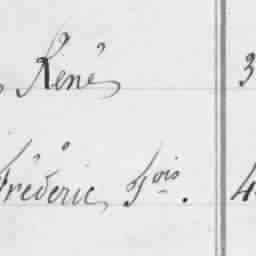 , René, 3
Fréderic, fois. 4